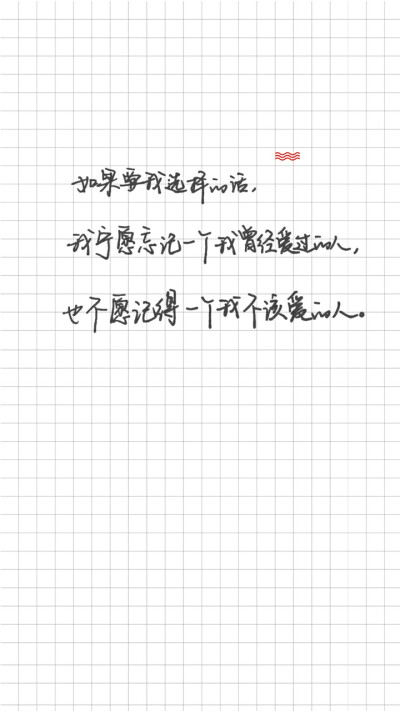 如果要我选择的话，
我宁愿忘记一个我曾经爱过的人，
也不愿记得一个我不该爱的人。